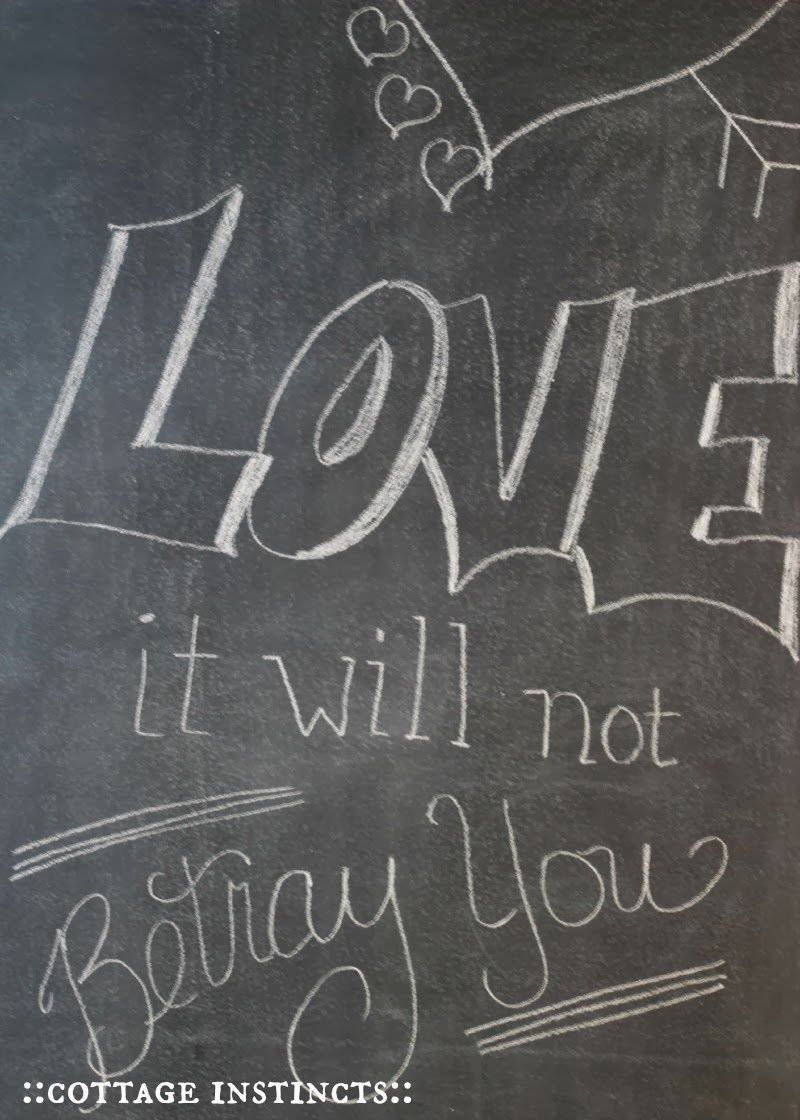 LOVE
it will not
Betray You
::COTTAGE INSTINCTS::